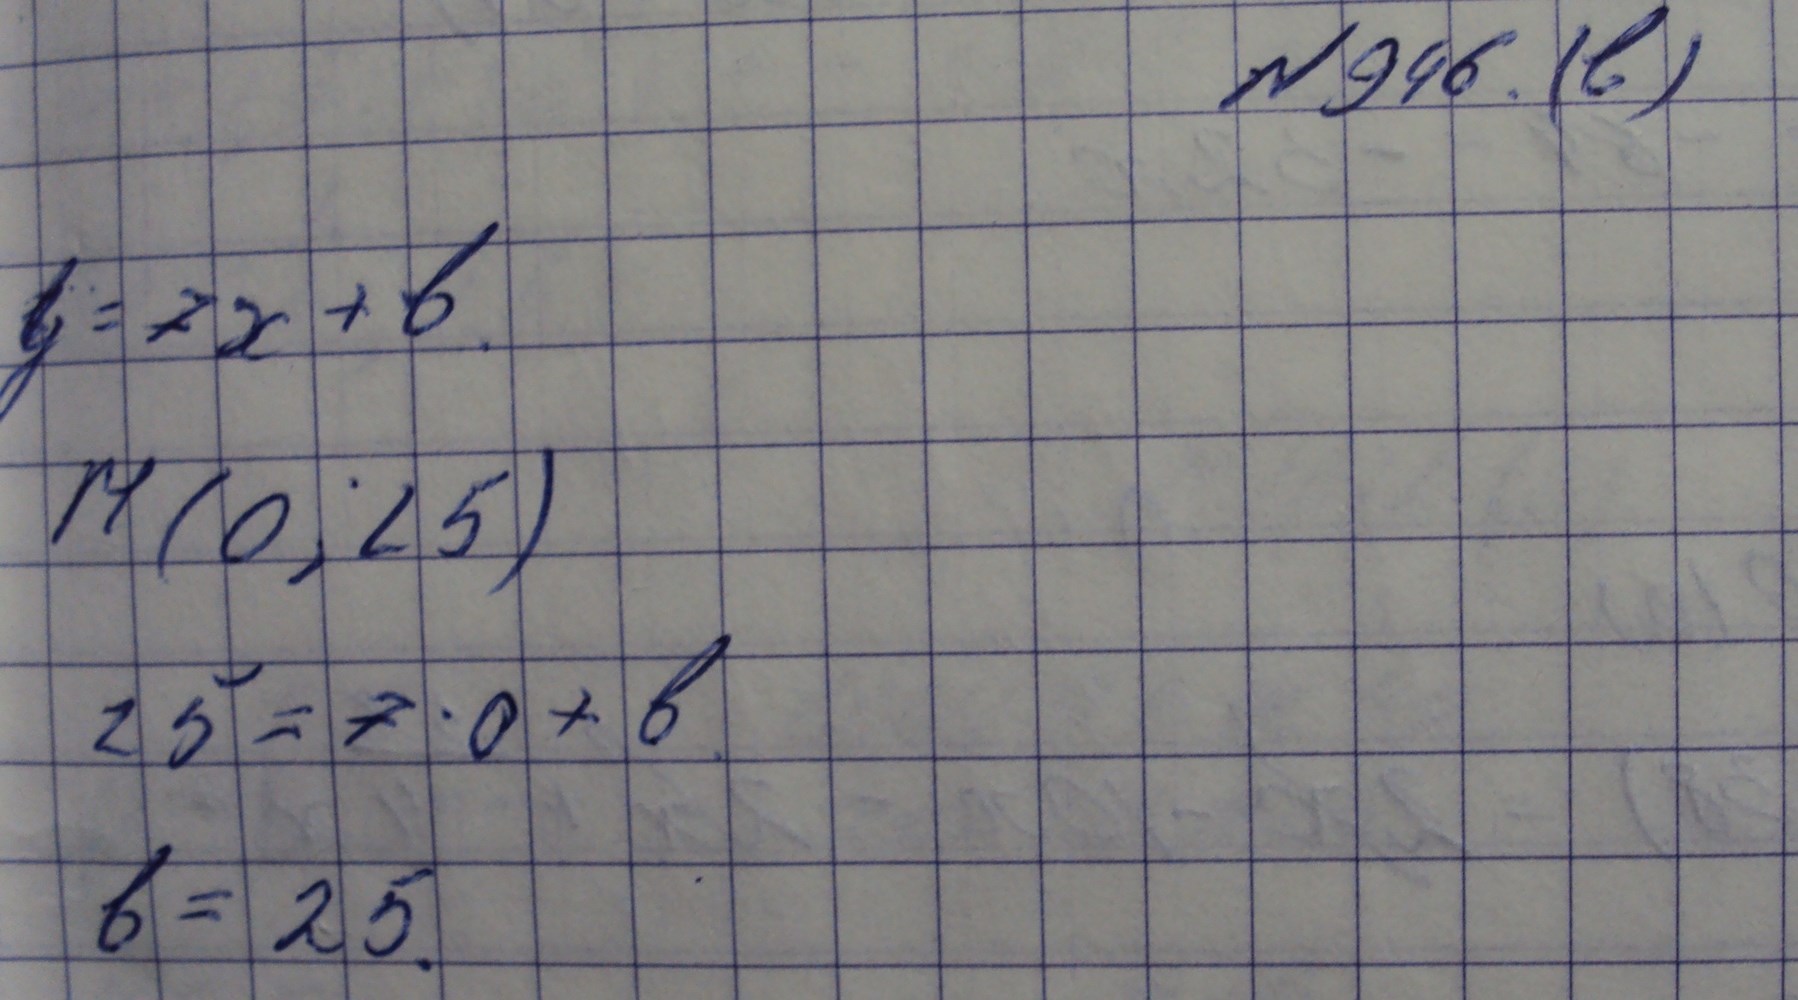 № 946. (в)
y = 7x + b.
M (0; 25)
25 = 7 · 0 + b.
b = 25.